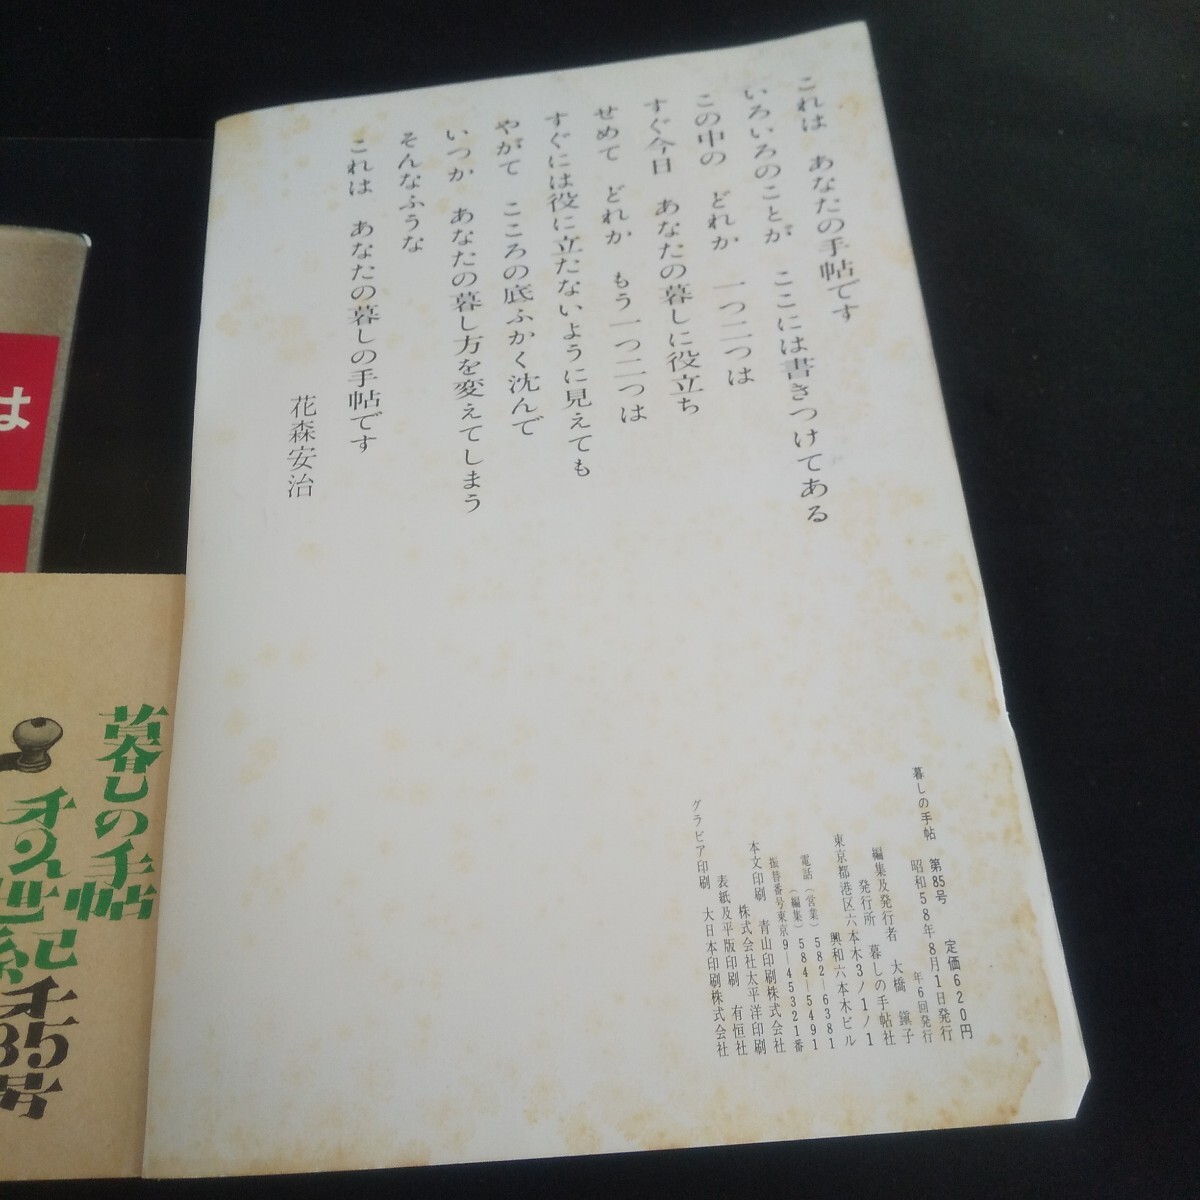 これは あなたの手帖です
いろいろのことが ここには書きつけてある
この中の どれか 一つ二つは
すぐ今日 あなたの暮しに役立ち
せめて どれか もう一つ二つは
すぐには役に立たないように見えても
やがて こころの底ふかく沈んで
いつか あなたの暮し方を変えてしまう
そんなふうな
これは あなたの暮しの手帖です
花森安治
暮しの手帖 第85号 定価620円
昭和58年8月1日発行
年6回発行
編集及発行者 大橋 鎭子
発行所 暮しの手帖社
東京都港区六本木3ノ1ノ1
興和六本木ビル
電話(営業)582―6381
(編集)584―5491
振替番号東京9―45321番
本文印刷 青山印刷株式会社
株式会社太平洋印刷
表紙及平版印刷 有恒社
グラビア印刷 大日本印刷株式会社
は
暮しの手帖
世紀
85
号